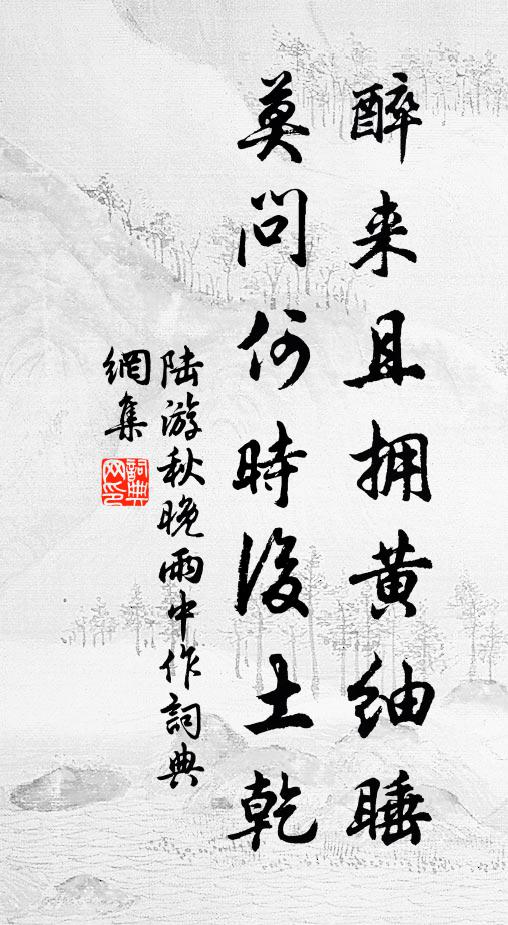 醉来且拥黄紬睡
莫問何時後土乾
陆游秋晚雨中作詞典
網集
詞典
网印